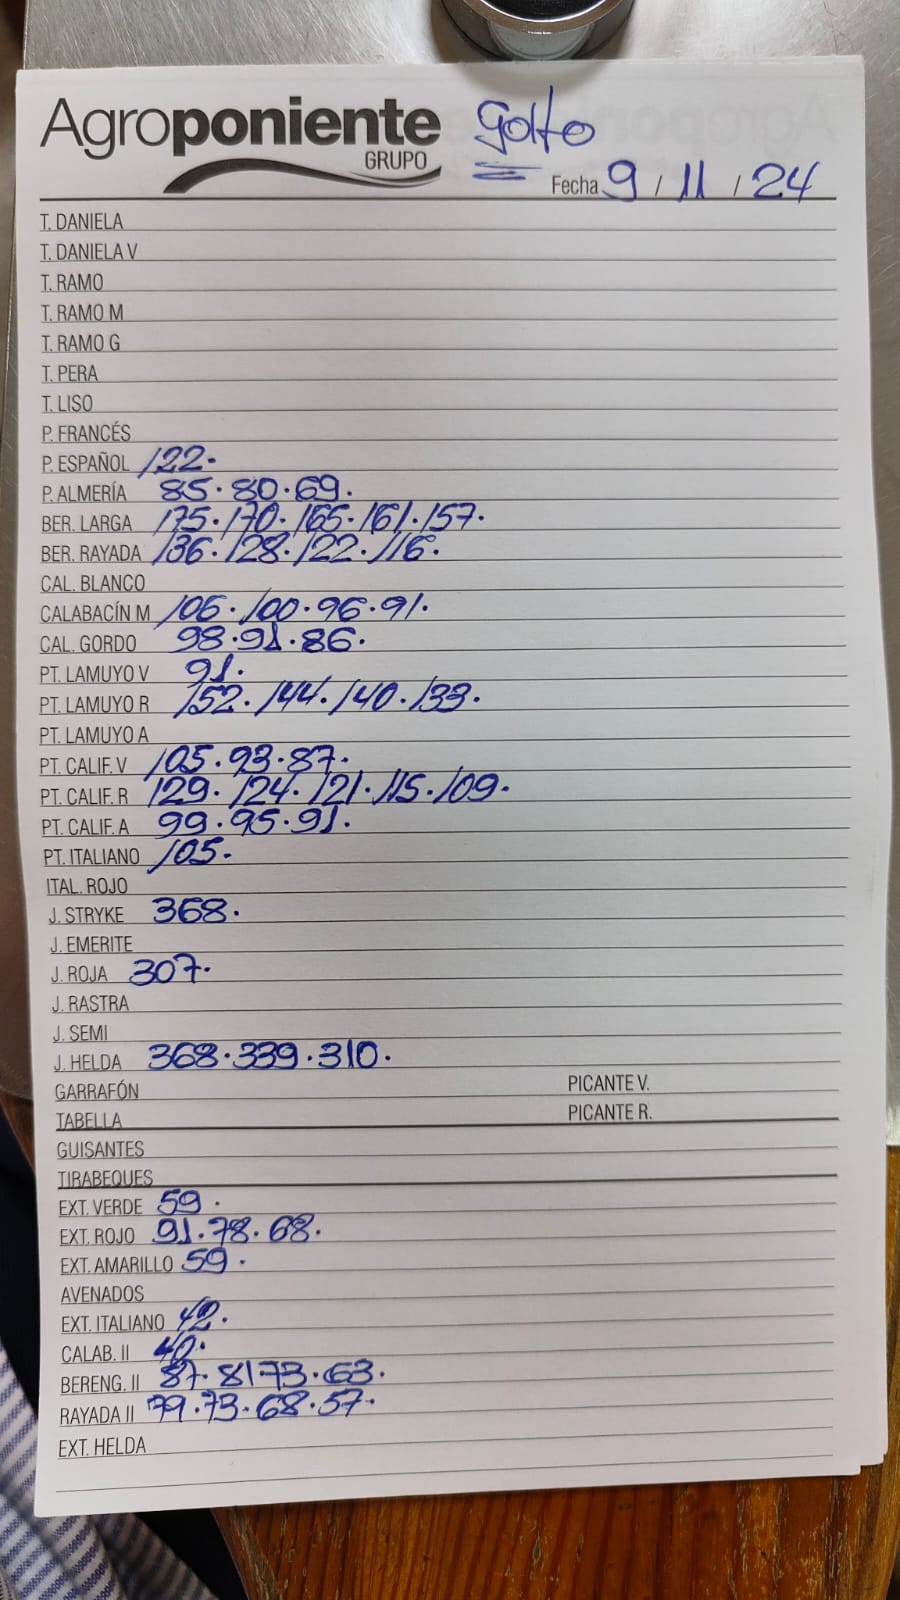 Agroponiente Golfo
GRUPO
Fecha 9 / 11 / 24
T. DANIELA
T. DANIELA V
T. RAMO
T. RAMO M
T. RAMO G
T. PERA
T. LISO
P. FRANCÉS
P. ESPAÑOL 122.
P. ALMERÍA 85. 80. 69.
BER. LARGA 175. 170. 165. 161. 157.
BER. RAYADA 136. 128. 122. 116.
CAL. BLANCO
CALABACÍN M 106. 100. 96. 91.
CAL. GORDO 98. 91. 86.
PT. LAMUYO V 91.
PT. LAMUYO R 152. 144. 140. 133.
PT. LAMUYO A
PT. CALIF. V 105. 93. 87.
PT. CALIF. R 129. 124. 121. 115. 109.
PT. CALIF. A 99. 95. 91.
PT. ITALIANO 105.
ITAL. ROJO
J. STRYKE 368.
J. EMERITE
J. ROJA 307.
J. RASTRA
J. SEMI
J. HELDA 368. 339. 310.
GARRAFÓN PICANTE V.
TABELLA PICANTE R.
GUISANTES
TIRABEQUES
EXT. VERDE 59.
EXT. ROJO 91. 78. 68.
EXT. AMARILLO 59.
AVENADOS
EXT. ITALIANO 42.
CALAB. II 40.
BERENG. II 87. 81 73. 63.
RAYADA II 79. 73. 68. 57.
EXT. HELDA